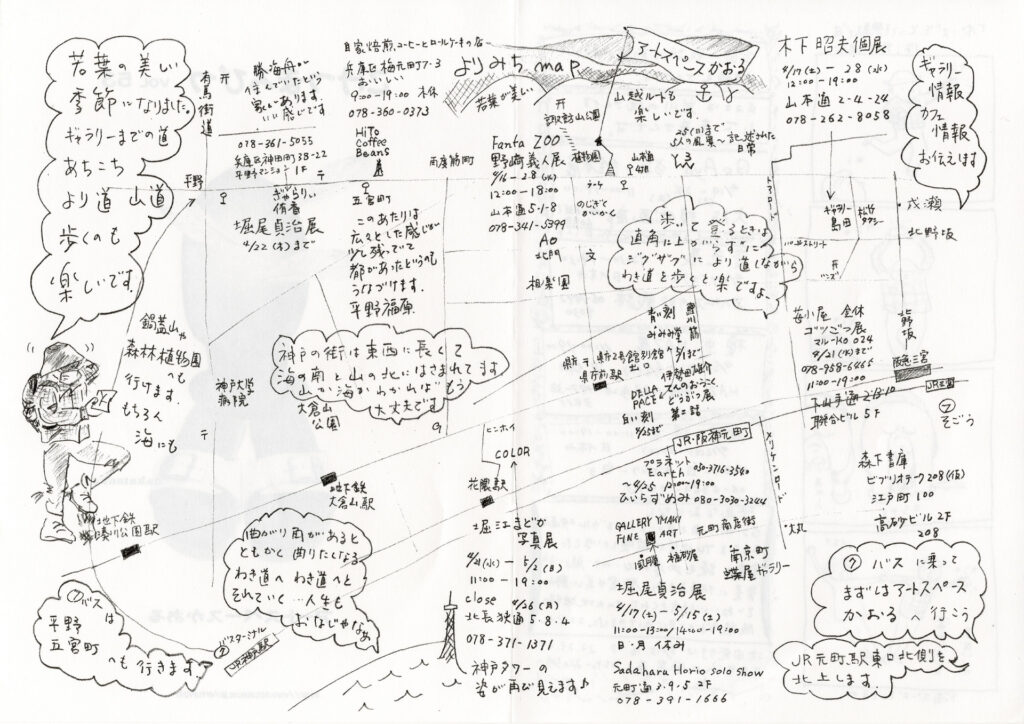 若葉の美しい
季節になりました。
ギャラリーまでの道
あちこち
より道 山道
歩くのも
楽しいです。
有馬街道
平野
勝海舟が
住んでいたという
家があります。
いい感じです
078-361-5055
兵庫区神田町38-22
平野マンション1F
ぎゃらりい
侑香
堀尾貞治展
4/22(木)まで
自家焙煎コーヒーとロールケーキの店
兵庫区梅元町7-3
おいしい
9:00-19:00 木休
078-360-0373
HiTo
Coffee
Beans
五宮町
このあたりは
広々とした感じが
少し残っていて
都があったというのも
うなづけます。
平野福原
よりみち map
若葉が美しい
アートスペースかおる
山越ルートも
楽しいです。
諏訪山公園
Fanta ZOO
野崎義人展
4/16-28(水)
12:00-18:00
山本通5-1-8
078-341-5399
植物園
山本通
4/25(日)まで
5人の風景～記述された
日常
北門
文
相楽園
木下昭夫個展
4/17(土)-28(水)
12:00-19:00
山本通2-4-24
078-262-8058
ギャラリー
情報
カフェ
情報
お伝えします
トアロード
ギャラリー
島田
松谷
タクシー
ハンター坂
北野坂
歩いて登るときは
直角に上がらずに
ジグザグにより道しながら
わき道を歩くと楽ですよ。
鍋蓋山や
森林植物園
へも
行けます。
もちろん
海にも
神戸大学
病院
神戸の街は東西に長くて
海の南と山の北にはさまれてます
山か海かわかればもう
大丈夫です
大倉山
公園
県庁
県庁前駅
県庁2号館別館
青い刻
みみみ堂
白い刻
どうぶつ展
第二話
苺小屋 全休
ゴツごつ展
マルーKO 024
4/21(水)まで
078-958-6465
11:00-19:00
下山手通2-13-10
聯合ビル5F
北野坂
阪急三宮
JR三宮
そごう
JR・阪神元町
メリケンロード
プラネット
Earth 050-3716-3540
～4/25 12:00-19:00
ひいらずめみ 080-3030-3244
ヒンホイ
COLOR
花隈駅
地下鉄
大倉山駅
地下鉄
湊川公園駅
堀江まどか
写真展
4/21(水)-5/2(日)
11:00-19:00
close 4/26(月)
北長狭通5-8-4
078-371-1371
神戸タワーの
姿が再び見えます♪
GALLERY YMAKI
FINE ART
元町商店街
風月堂
大丸
南京町
蝶屋ギャラリー
堀尾貞治展
4/17(土)-5/15(土)
11:00-13:00/14:00-19:00
日・月 休み
Sadaharu Horio solo show
元町通2-9-5 2F
078-391-1666
森下書庫
ビブリオテーク208(仮)
江戸町100
高砂ビル2F
208
曲がり角があると
ともかく曲りたくなる
わき道へわき道へと
それていく…人生も
おなじゃなあ
⑦バス
は
平野
五宮町
へも行きます。
バスターミナル
JR神戸駅
⑦バスに乗って
まずはアートスペース
かおるへ行こう
JR元町駅東口北側を
北上します。